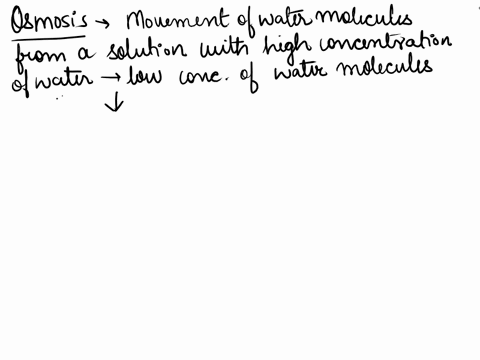 Osmosis → Movement of water molecules
from a solution with high concentration
of water → low conc. of water molecules
↓